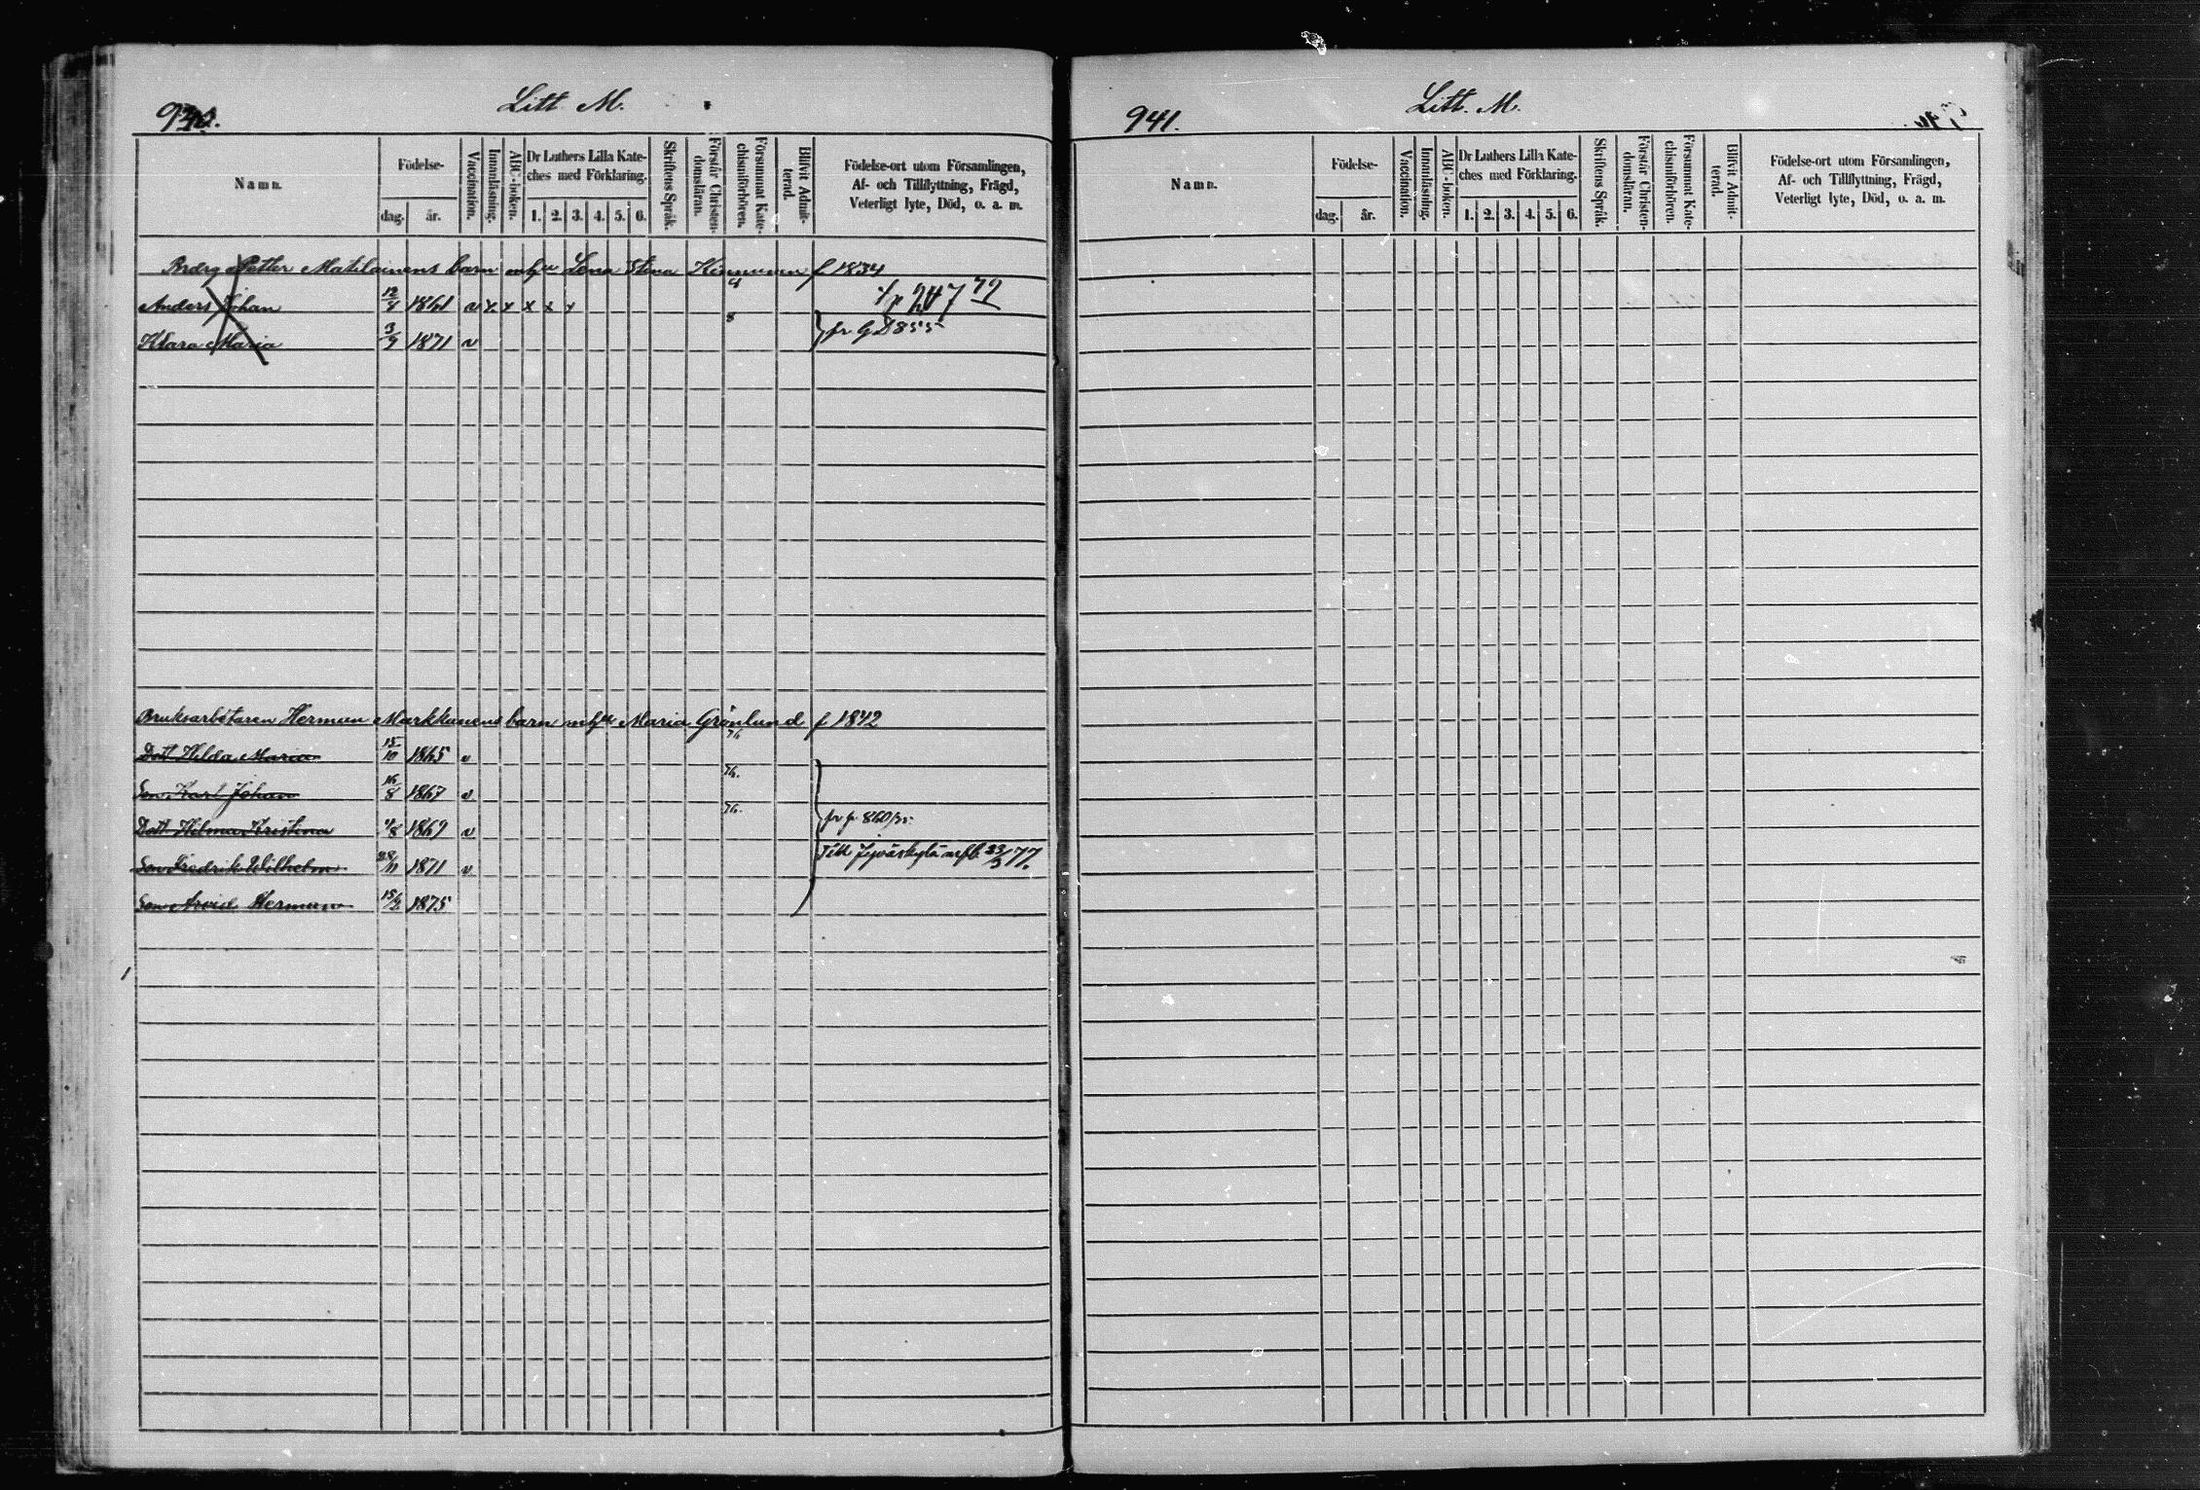 940.
Litt. M.
Namn.
Födelse-
dag.
år.
Vaccination.
Innanläsning.
ABC-boken.
Dr Luthers Lilla Kate-
ches med Förklaring.
1. 2. 3. 4. 5. 6.
Skriftens Språk.
Förstår Christen-
domsläran.
Försummat Kate-
chismiförhören.
Blifvit Admit-
terad.
Födelse-ort utom Församlingen,
Af- och Tillflyttning, Frägd,
Veterligt lyte, Död, o. a. m.
Petter Matilainens barn mhu Lena Stina Kinnunen f 1834
Anders Johan 1861 v x x x x x
Klara Maria 3/9 1871 v fr. G D 855
Bruksarbetaren Herman Markkanens barn mhu Maria Grönlund f 1842
Dott Hilda Maria 15/10 1865 v
Son Karl Johan 16/8 1867 v 76.
Dott Hilma Kristina 4/8 1869 v 76. fr p. 860
Son Fredrik Wilhelm 28/11 1871 v Till Jyväskylä 23/3 77.
Son Arvid Herman 15/2 1875
941.
Litt. M.
Namn.
Födelse-
dag.
år.
Vaccination.
Innanläsning.
ABC-boken.
Dr Luthers Lilla Kate-
ches med Förklaring.
1. 2. 3. 4. 5. 6.
Skriftens Språk.
Förstår Christen-
domsläran.
Försummat Kate-
chismiförhören.
Blifvit Admit-
terad.
Födelse-ort utom Församlingen,
Af- och Tillflyttning, Frägd,
Veterligt lyte, Död, o. a. m.